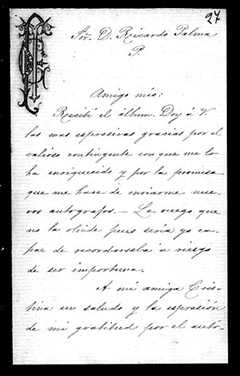 27
Sor. D. Ricardo Palma
P.
Amigo mio:
Recibí el álbum. Doy á V.
las mas espresivas gracias por el
valioso contingente con que me lo
ha enriquecido y por la promesa
que me hace de enviarme nue-
vos autografos. — Le ruego que
no la olvide pues sería yo ca-
paz de recordarsela á riesgo
de ser importuna.
A mi amiga Cris-
tina un saludo y la espresión
de mi gratitud por el auto-